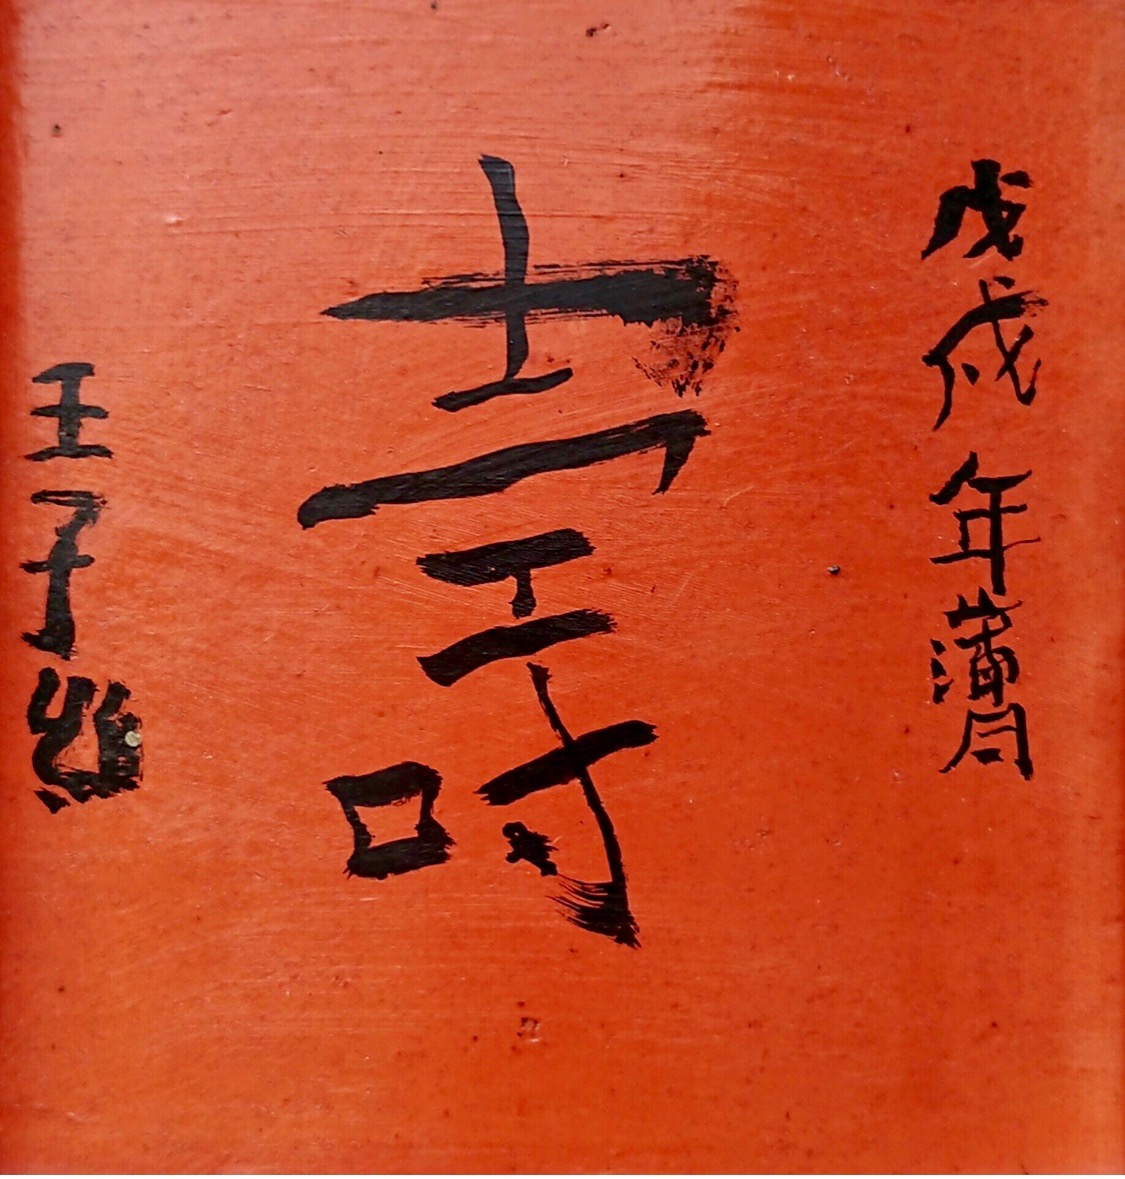 戊戌年蒲月
壽
王子